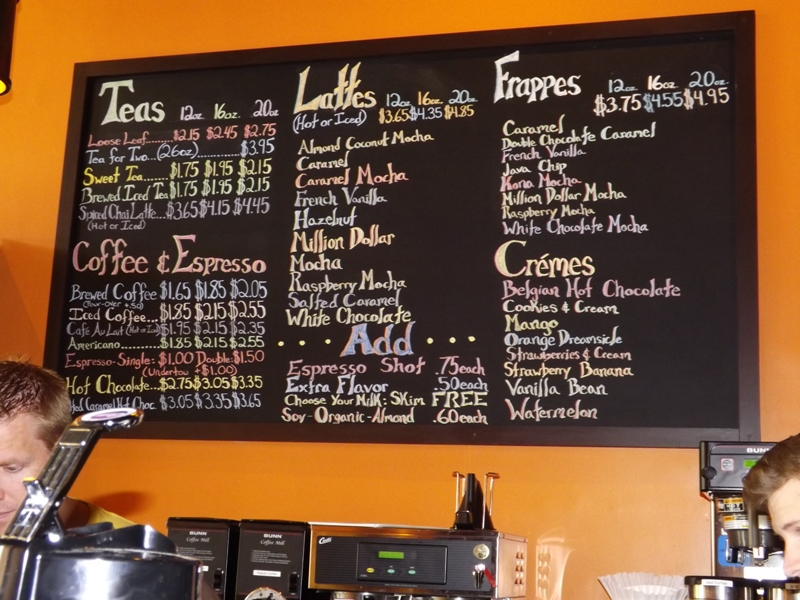 Teas 12oz 16oz 20oz
Loose Leaf.......$2.15 $2.45 $2.75
Tea for Two...(26oz)............$3.95
Sweet Tea......$1.75 $1.95 $2.15
Brewed Iced Tea $1.75 $1.95 $2.15
Spiced Chai Latte...$3.65 $4.15 $4.45
(Hot or Iced)
Coffee & Espresso
Brewed Coffee $1.65 $1.85 $2.05
(Pour-Over +.50)
Iced Coffee...$1.85 $2.15 $2.55
Café Au Lait (Hot or Iced) $1.95 $2.15 $2.35
Americano.......$1.85 $2.15 $2.55
Espresso-Single: $1.00 Double: $1.50
(Undertow +$1.00)
Hot Chocolate...$2.75 $3.05 $3.35
Caramel Hot Choc. $3.05 $3.35 $3.65
Lattes 12oz 16oz 20oz
(Hot or Iced) $3.65 $4.35 $4.85
Almond Coconut Mocha
Caramel
Caramel Mocha
French Vanilla
Hazelnut
Million Dollar
Mocha
Raspberry Mocha
Salted Caramel
White Chocolate
. . . . Add . . . .
Espresso Shot .75each
Extra Flavor .50each
Choose Your Milk: Skim FREE
Soy-Organic-Almond .60each
Frappes 12oz 16oz 20oz
$3.75 $4.55 $4.95
Caramel
Double Chocolate Caramel
French Vanilla
Java Chip
Kona Mocha
Million Dollar Mocha
Raspberry Mocha
White Chocolate Mocha
Crémes
Belgian Hot Chocolate
Cookies & Cream
Mango
Orange Dreamsicle
Strawberries & Cream
Strawberry Banana
Vanilla Bean
Watermelon
BUNN
Coffee Mill
BUNN
Coffee Mill
Curtis
BUNN